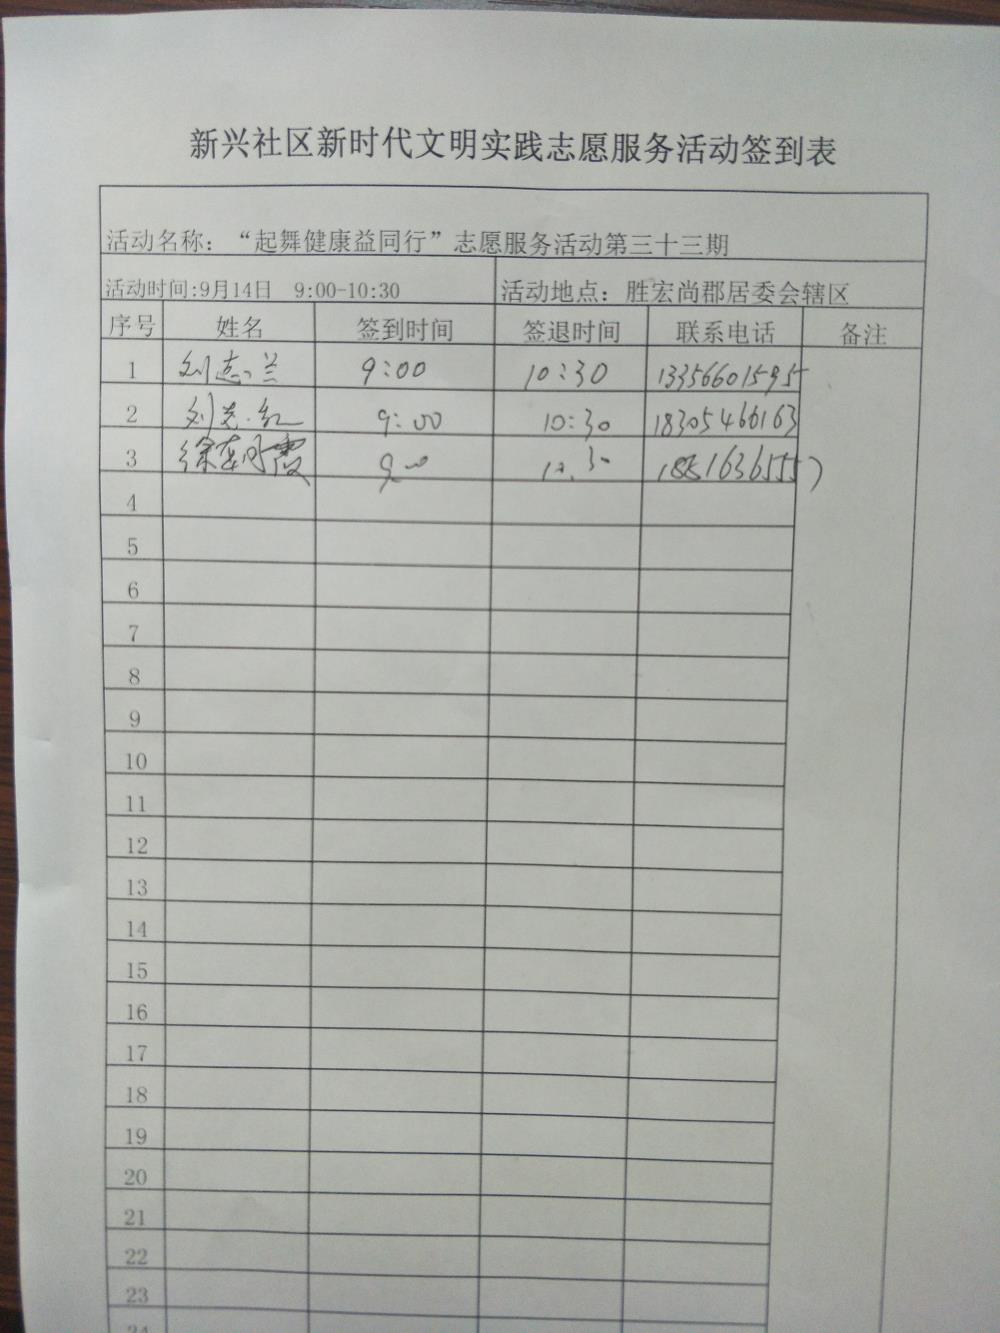 新兴社区新时代文明实践志愿服务活动签到表
活动名称：“起舞健康益同行”志愿服务活动第三十三期
活动时间:9月14日 9:00-10:30 活动地点：胜宏尚郡居委会辖区
序号 姓名 签到时间 签退时间 联系电话 备注
1 刘志兰 9:00 10:30 13356601595
2 刘红 9:00 10:30 18305466163
3 徐霞 9:00 10:30
4
5
6
7
8
9
10
11
12
13
14
15
16
17
18
19
20
21
22
23
24